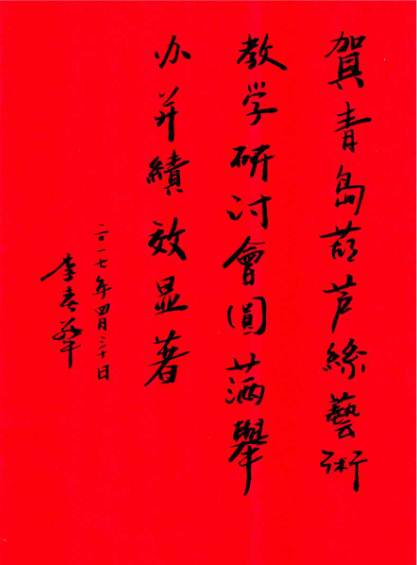 賀青島葫芦絲藝術
教学研讨會圓满舉
办并績效显著
二〇一七年四月二十日
李春华